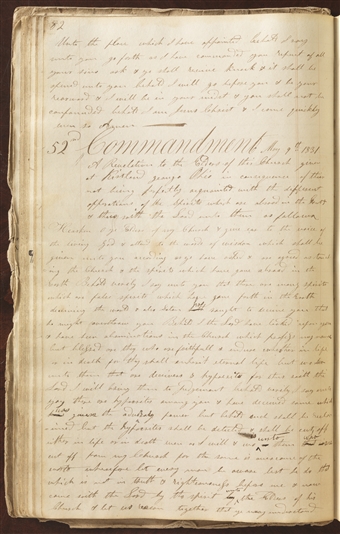 82
Unto the place which I have appointed Behold I say
unto you go forth as I have commanded you repent of all
your sins ask & ye shall receive knock & it shall be
opened unto you Behold I will go before you & be your
rearward & I will be in your midst & you shall not be
confounded Behold I am Jesus Christ & I come quickly
even so Amen
52nd Commandment May 9th 1831
A Revelation to the Elders of this Church given
at Kirtland Geauga Ohio in consequence of their
not being perfectly acquainted with the different
opperations of the Spirits which are abroad in the
& thus saith the Lord unto them as follows
Hearken O ye Elders of my Church & give ear to the voice of
the living God & attend to the words of wisdom which shall be
given unto you according as ye have asked & are agreed
the Church & the spirits which have gone abroad in the
earth Behold verily I say unto you that there are many spirits
which are false spirits which have gone forth in the Earth
deceiving the world & also Satan hath saught to deceive you that
he might overthrow you Behold I the Lord have looked upon you
& have seen abominations in the Church which profess my name
but blessed are they who are faithfull & endure whether in life
or in death for they shall inherit eternal life but wo
unto them that are deceivers & hypocrites for thus saith the
Lord I will bring them to judgement Behold verily I say unto
you there are hypocrites among you & have deceived some which
given the adversary power but behold such shall be reclaimed
but the hypocrites shall be detected & shall be cut off
either in life or in death even as I will & wo unto them
cut off from my Church for the same is overcome of the
world wherefore let every man beware lest he do that
which is not in truth & righteousness before me & now
come saith the Lord by the spirit to the Elders of his
Church & let us reason together that ye may understand